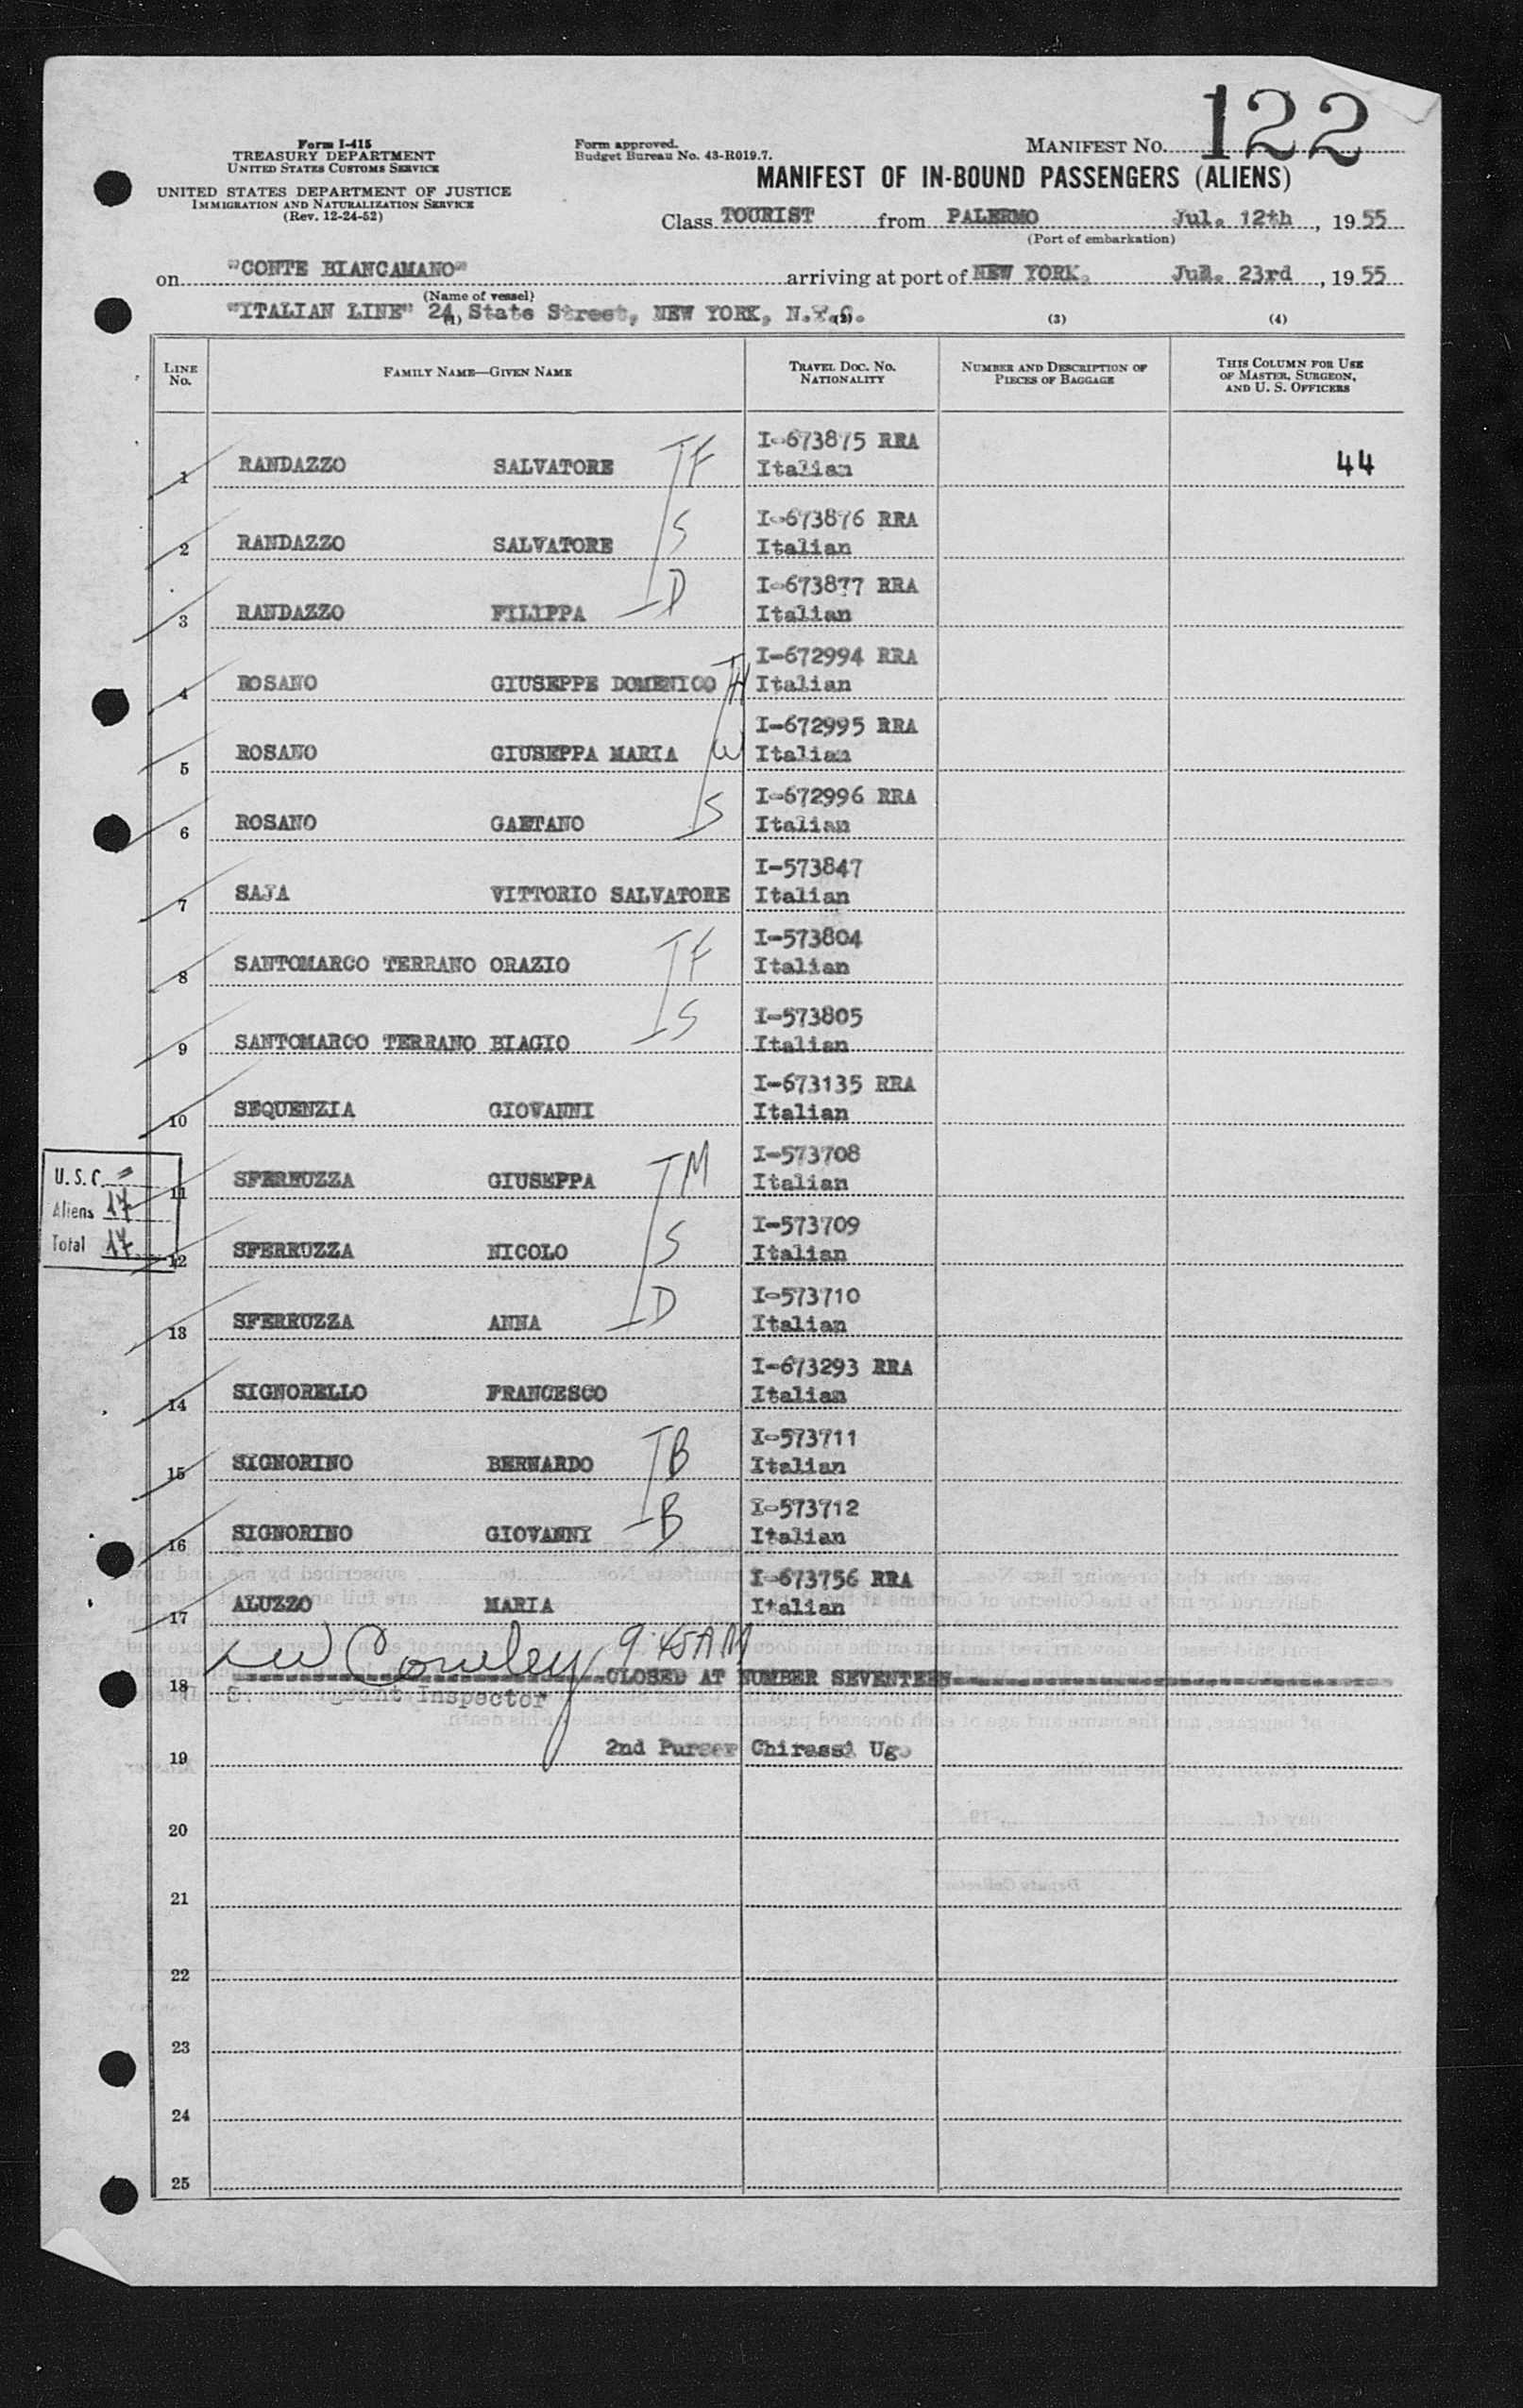 Form I-415
TREASURY DEPARTMENT
UNITED STATES CUSTOMS SERVICE
UNITED STATES DEPARTMENT OF JUSTICE
IMMIGRATION AND NATURALIZATION SERVICE
(Rev. 12-24-52)
Form approved.
Budget Bureau No. 43-R019.7.
MANIFEST NO. 122
MANIFEST OF IN-BOUND PASSENGERS (ALIENS)
Class TOURIST from PALERMO Jul. 12th, 1955
(Port of embarkation)
on "CONTE BIANCAMANO" arriving at port of NEW YORK, Jul. 23rd, 1955
(Name of vessel)
"ITALIAN LINE" 24, State Street, NEW YORK, N.Y.C.
(1) (2) (3) (4)
LINE NO. FAMILY NAME—GIVEN NAME TRAVEL DOC. NO. NATIONALITY NUMBER AND DESCRIPTION OF PIECES OF BAGGAGE THIS COLUMN FOR USE OF MASTER, SURGEON, AND U. S. OFFICERS
I-673875 RRA
1 RANDAZZO SALVATORE F Italian 44
I-673876 RRA
2 RANDAZZO SALVATORE S Italian
I-673877 RRA
3 RANDAZZO FILIPPA D Italian
I-672994 RRA
4 ROSANO GIUSEPPE DOMENICO H Italian
I-672995 RRA
5 ROSANO GIUSEPPA MARIA W Italian
I-672996 RRA
6 ROSANO GAETANO S Italian
I-573847
7 SAJA VITTORIO SALVATORE Italian
I-573804
8 SANTOMARCO TERRANO ORAZIO F Italian
I-573805
9 SANTOMARCO TERRANO BIAGIO S Italian
I-673135 RRA
10 SEQUENZIA GIOVANNI Italian
I-573708
11 SFERRUZZA GIUSEPPA M Italian
I-573709
12 SFERRUZZA NICOLO S Italian
I-573710
13 SFERRUZZA ANNA D Italian
I-673293 RRA
14 SIGNORELLO FRANCESCO Italian
I-573711
15 SIGNORINO BERNARDO B Italian
I-573712
16 SIGNORINO GIOVANNI B Italian
I-673756 RRA
17 ALUZZO MARIA Italian
U.S.C. =
Aliens 17
Total 17
Cowley 9:45AM
18 CLOSED AT NUMBER SEVENTEEN
Inspector
19 2nd Purser Chirassi Ugo
20
21
22
23
24
25